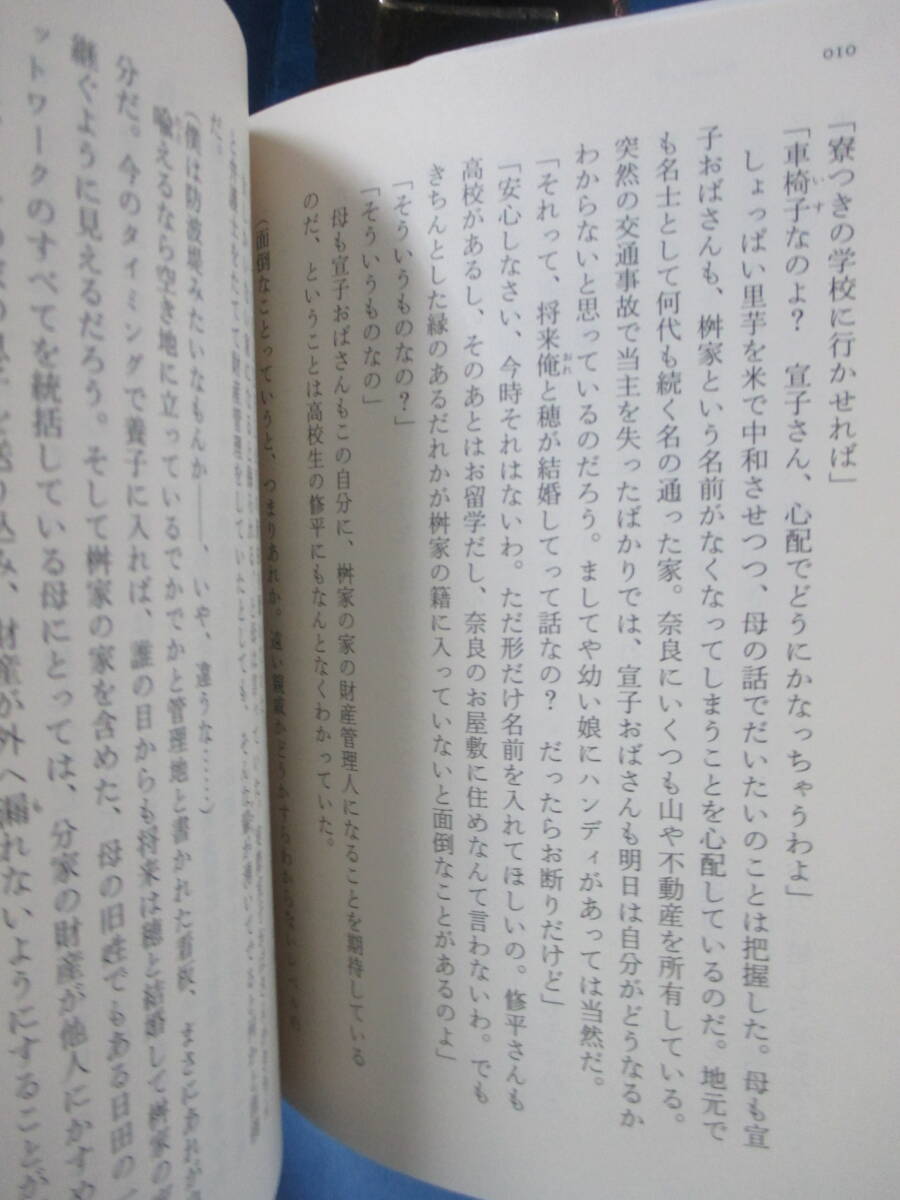 010
「寮つきの学校に行かせれば」
「車椅子なのよ？　宣子さん、心配でどうにかなっちゃうわよ」
いす
しょっぱい里芋を米で中和させつつ、母の話でだいたいのことは把握した。母も宣
子おばさんも、桝家という名前がなくなってしまうことを心配しているのだ。地元で
も名士として何代も続く名の通った家。奈良にいくつも山や不動産を所有している。
突然の交通事故で当主を失ったばかりでは、宣子おばさんも明日は自分がどうなるか
わからないと思っているのだろう。ましてや幼い娘にハンディがあっては当然だ。
「それって、将来俺と穂が結婚してって話なの？　だったらお断りだけど」
おれ
「安心しなさい、今時それはないわ。ただ形だけ名前を入れてほしいの。修平さんも
高校があるし、そのあとはお留学だし、奈良のお屋敷に住めなんて言わないわ。でも
きちんとした縁のあるだれかが桝家の籍に入っていないと面倒なことがあるのよ」
「そういうものなの？」
「そういうものなの」
母も宣子おばさんもこの自分に、桝家の家の財産管理人になることを期待している
のだ、ということは高校生の修平にもなんとなくわかっていた。
（面倒なことっていうと、つまりあれか。遠い親戚かどうかすらわからない
だ。
（僕は防波堤みたいなもんか――、いや、違うな……）
喩えるなら空き地に立っているでかでかと管理地と書かれた看板、まさにあれが
分だ。今のタイミングで養子に入れば、誰の目からも将来は穂と結婚して桝家の
継ぐように見えるだろう。そして桝家の家を含めた、母の旧姓でもある日田の
ットワークのすべてを統括している母にとっては、分家の財産が他人にかすめ
り込み、財産が外へ漏れないようにすることが